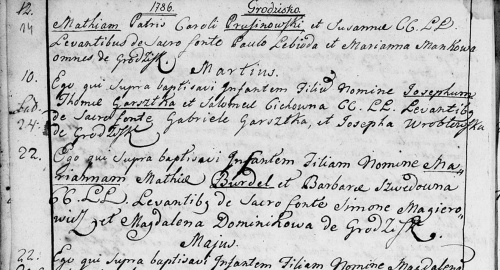 12. 1786. Grodzisko.
14 Mathiam Patris Caroli Prusinowski et Susannæ CC. LL.
Levantibus de Sacro fonte Paulo Lebioda et Marianna Mankowa
omnes de Grodzisk
Martius.
10. Ego qui Supra baptisavi Infantem Filiū Nomine Josephum
Thomæ Garsztka et Salomeæ Cichowna CC. LL. Levantibq
24. de Sacro fonte Gabriele Garsztka, et Josepha Wroblewska
de Grodzisk
22. Ego qui Supra baptisavi Infantem Filiam Nomine Ma-
riannam Mathiæ Burdel et Barbaræ Szwedowna
CC. LL. Levantibq de Sacro fonte Simone Magiero-
wicz et Magdalena Dominikowa de Grodzisk.
Majus.
22. Ego qui Supra baptisavi Infantem Filiam Nomine Magdalenam